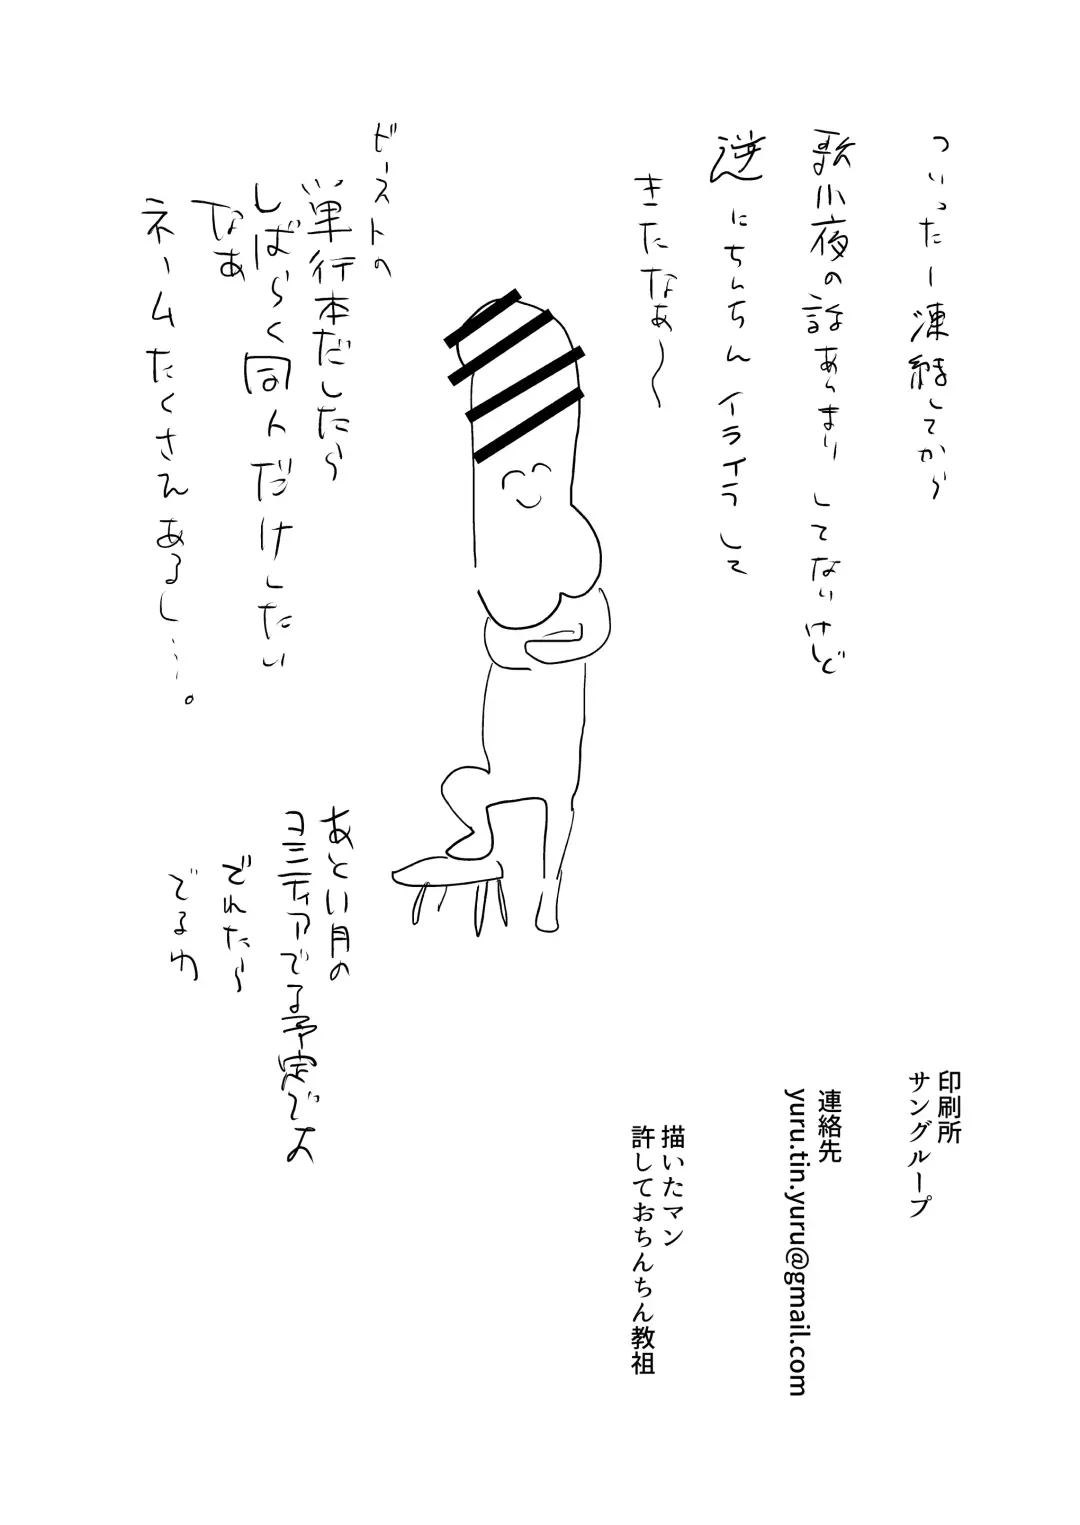 ついったー凍結してから
歌小夜の話あんまりしてないけど
逆にちんちんイライラして
きたなあ～
ビーストの
単行本だしたら
しばらく同人だけしたい
なあ
ネームたくさんあるし…。
あとい月の
コミティアでる予定でよ
でれたら
でるわ
印刷所
サングループ
連絡先
yuru.tin.yuru@gmail.com
描いたマン
許しておちんちん教祖